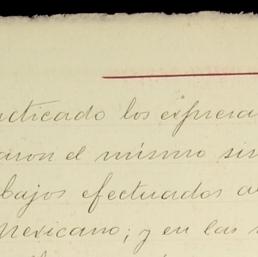 acticado los expresa
aron el mismo sin
bajos efectuados a
Mexicano; y en las